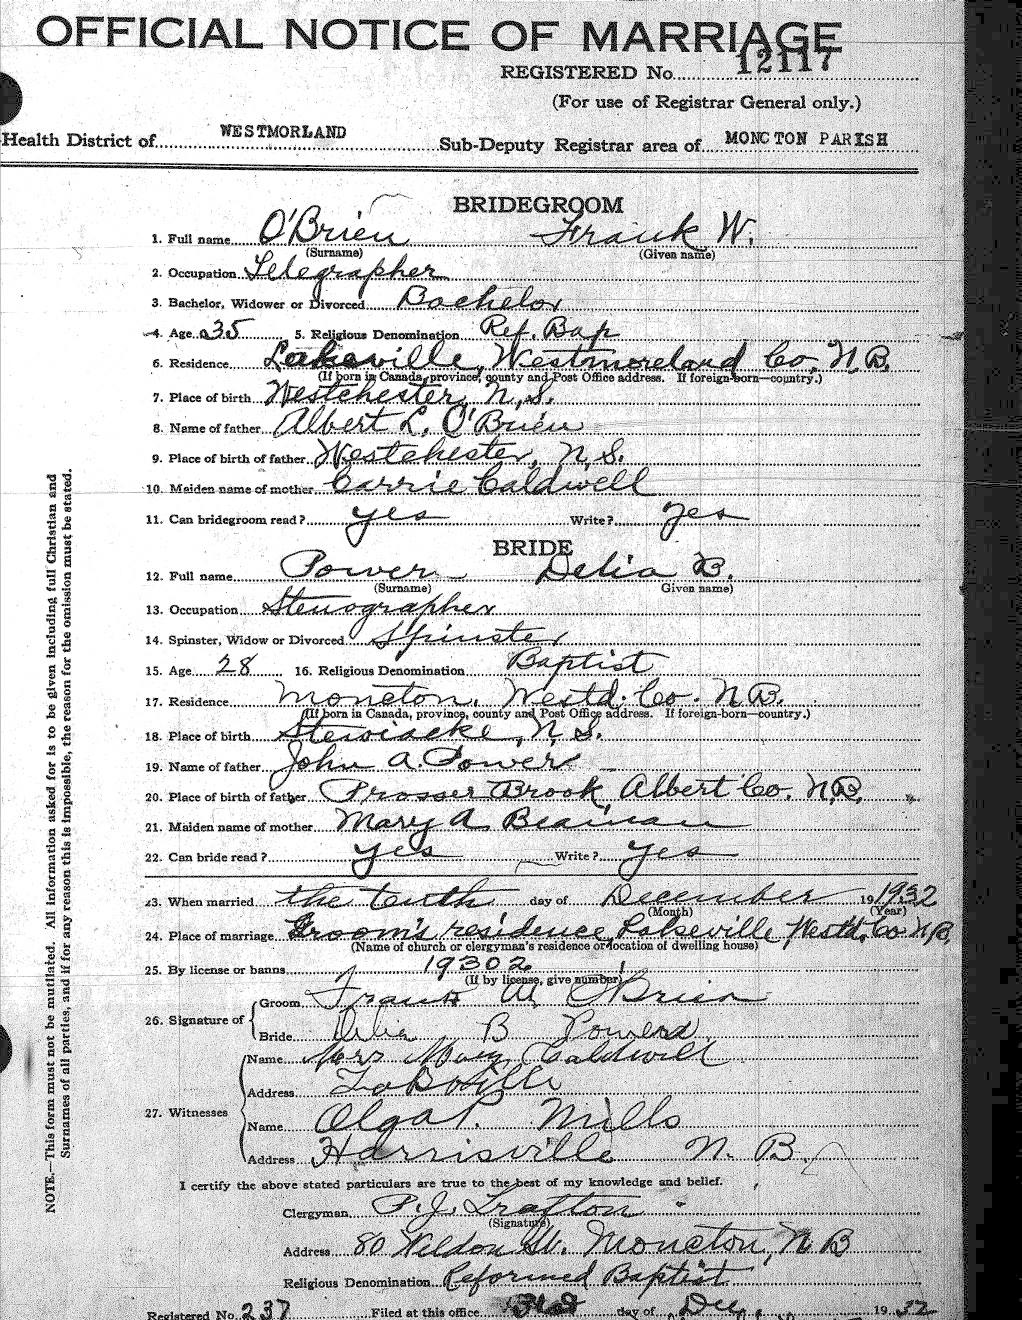 OFFICIAL NOTICE OF MARRIAGE
REGISTERED No. 12117
(For use of Registrar General only.)
Health District of WESTMORLAND Sub-Deputy Registrar area of MONCTON PARISH
BRIDEGROOM
1. Full name O'Brien Frank W.
(Surname) (Given name)
2. Occupation Telegrapher
3. Bachelor, Widower or Divorced Bachelor
4. Age 35 5. Religious Denomination Ref. Bap
6. Residence Lakeville, Westmoreland Co. N.B.
(If born in Canada, province, county and Post Office address. If foreign-born—country.)
7. Place of birth Westchester, N.S.
8. Name of father Albert L. O'Brien
9. Place of birth of father Westchester, N.S.
10. Maiden name of mother Carrie Caldwell
11. Can bridegroom read? yes Write? yes
BRIDE
12. Full name Power Delia B.
(Surname) Given name)
13. Occupation Stenographer
14. Spinster, Widow or Divorced Spinster
15. Age 28 16. Religious Denomination Baptist
17. Residence Moncton, Westd. Co. N.B.
(If born in Canada, province, county and Post Office address. If foreign-born—country.)
18. Place of birth Stewiacke, N.S.
19. Name of father John A. Power
20. Place of birth of father Prosser Brook, Albert Co. N.B.
21. Maiden name of mother Mary A.
22. Can bride read? yes Write? yes
23. When married the tenth day of December 19 1932
(Month) (Year)
24. Place of marriage Groom's residence, Lakeville Westd. Co. N.B.
(Name of church or clergyman's residence or location of dwelling house)
25. By license or banns 19302
(If by license, give number)
26. Signature of Groom Frank W O'Brien
Bride Delia B Powers
27. Witnesses Name Mrs Mary Caldwell
Address Lakeville
Name Olga P. Mills
Address Harrisville N. B.
I certify the above stated particulars are true to the best of my knowledge and belief.
Clergyman P. J. Trafton
(Signature)
Address 80 Weldon St. Moncton, N B
Religious Denomination Reformed Baptist
Registered No. 237 Filed at this office day of Dec. 19 32
NOTE.—This form must not be mutilated. All information asked for is to be given including full Christian and
Surnames of all parties, and if for any reason this is impossible, the reason for the omission must be stated.